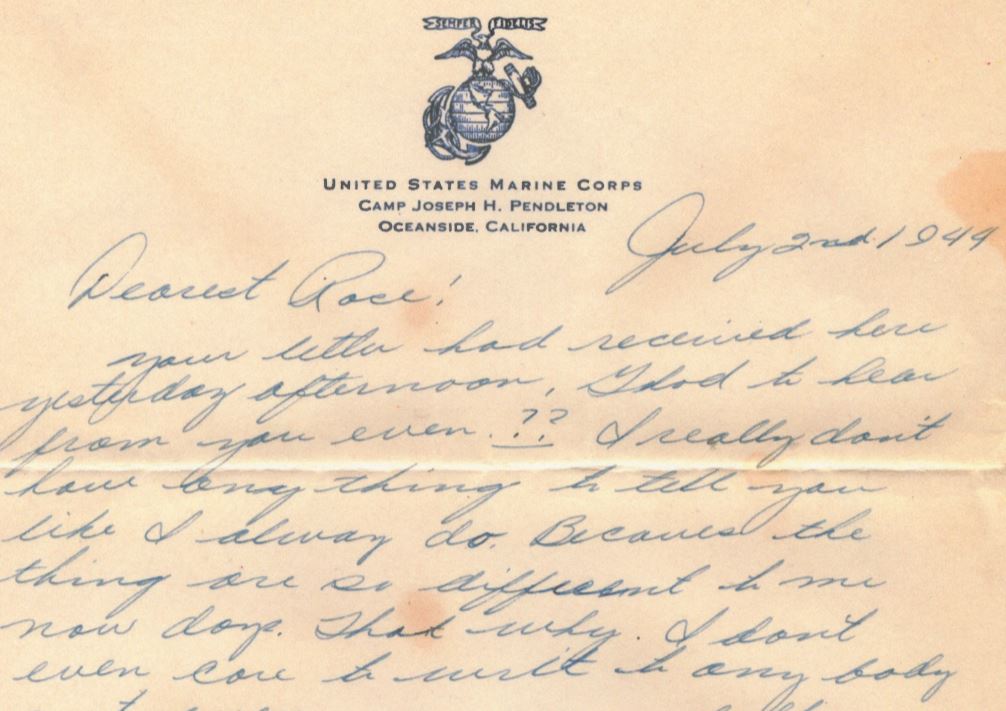 SEMPER FIDELIS
UNITED STATES MARINE CORPS
CAMP JOSEPH H. PENDLETON
OCEANSIDE, CALIFORNIA
July 2nd. 1944
Dearest Rose!
your letter had received here
yesterday afternoon, Glad to hear
from you even. ?? I really don't
have any thing to tell you
like I alway do. Because the
thing are so different to me
now days. That why. I don't
even care to writ to any body